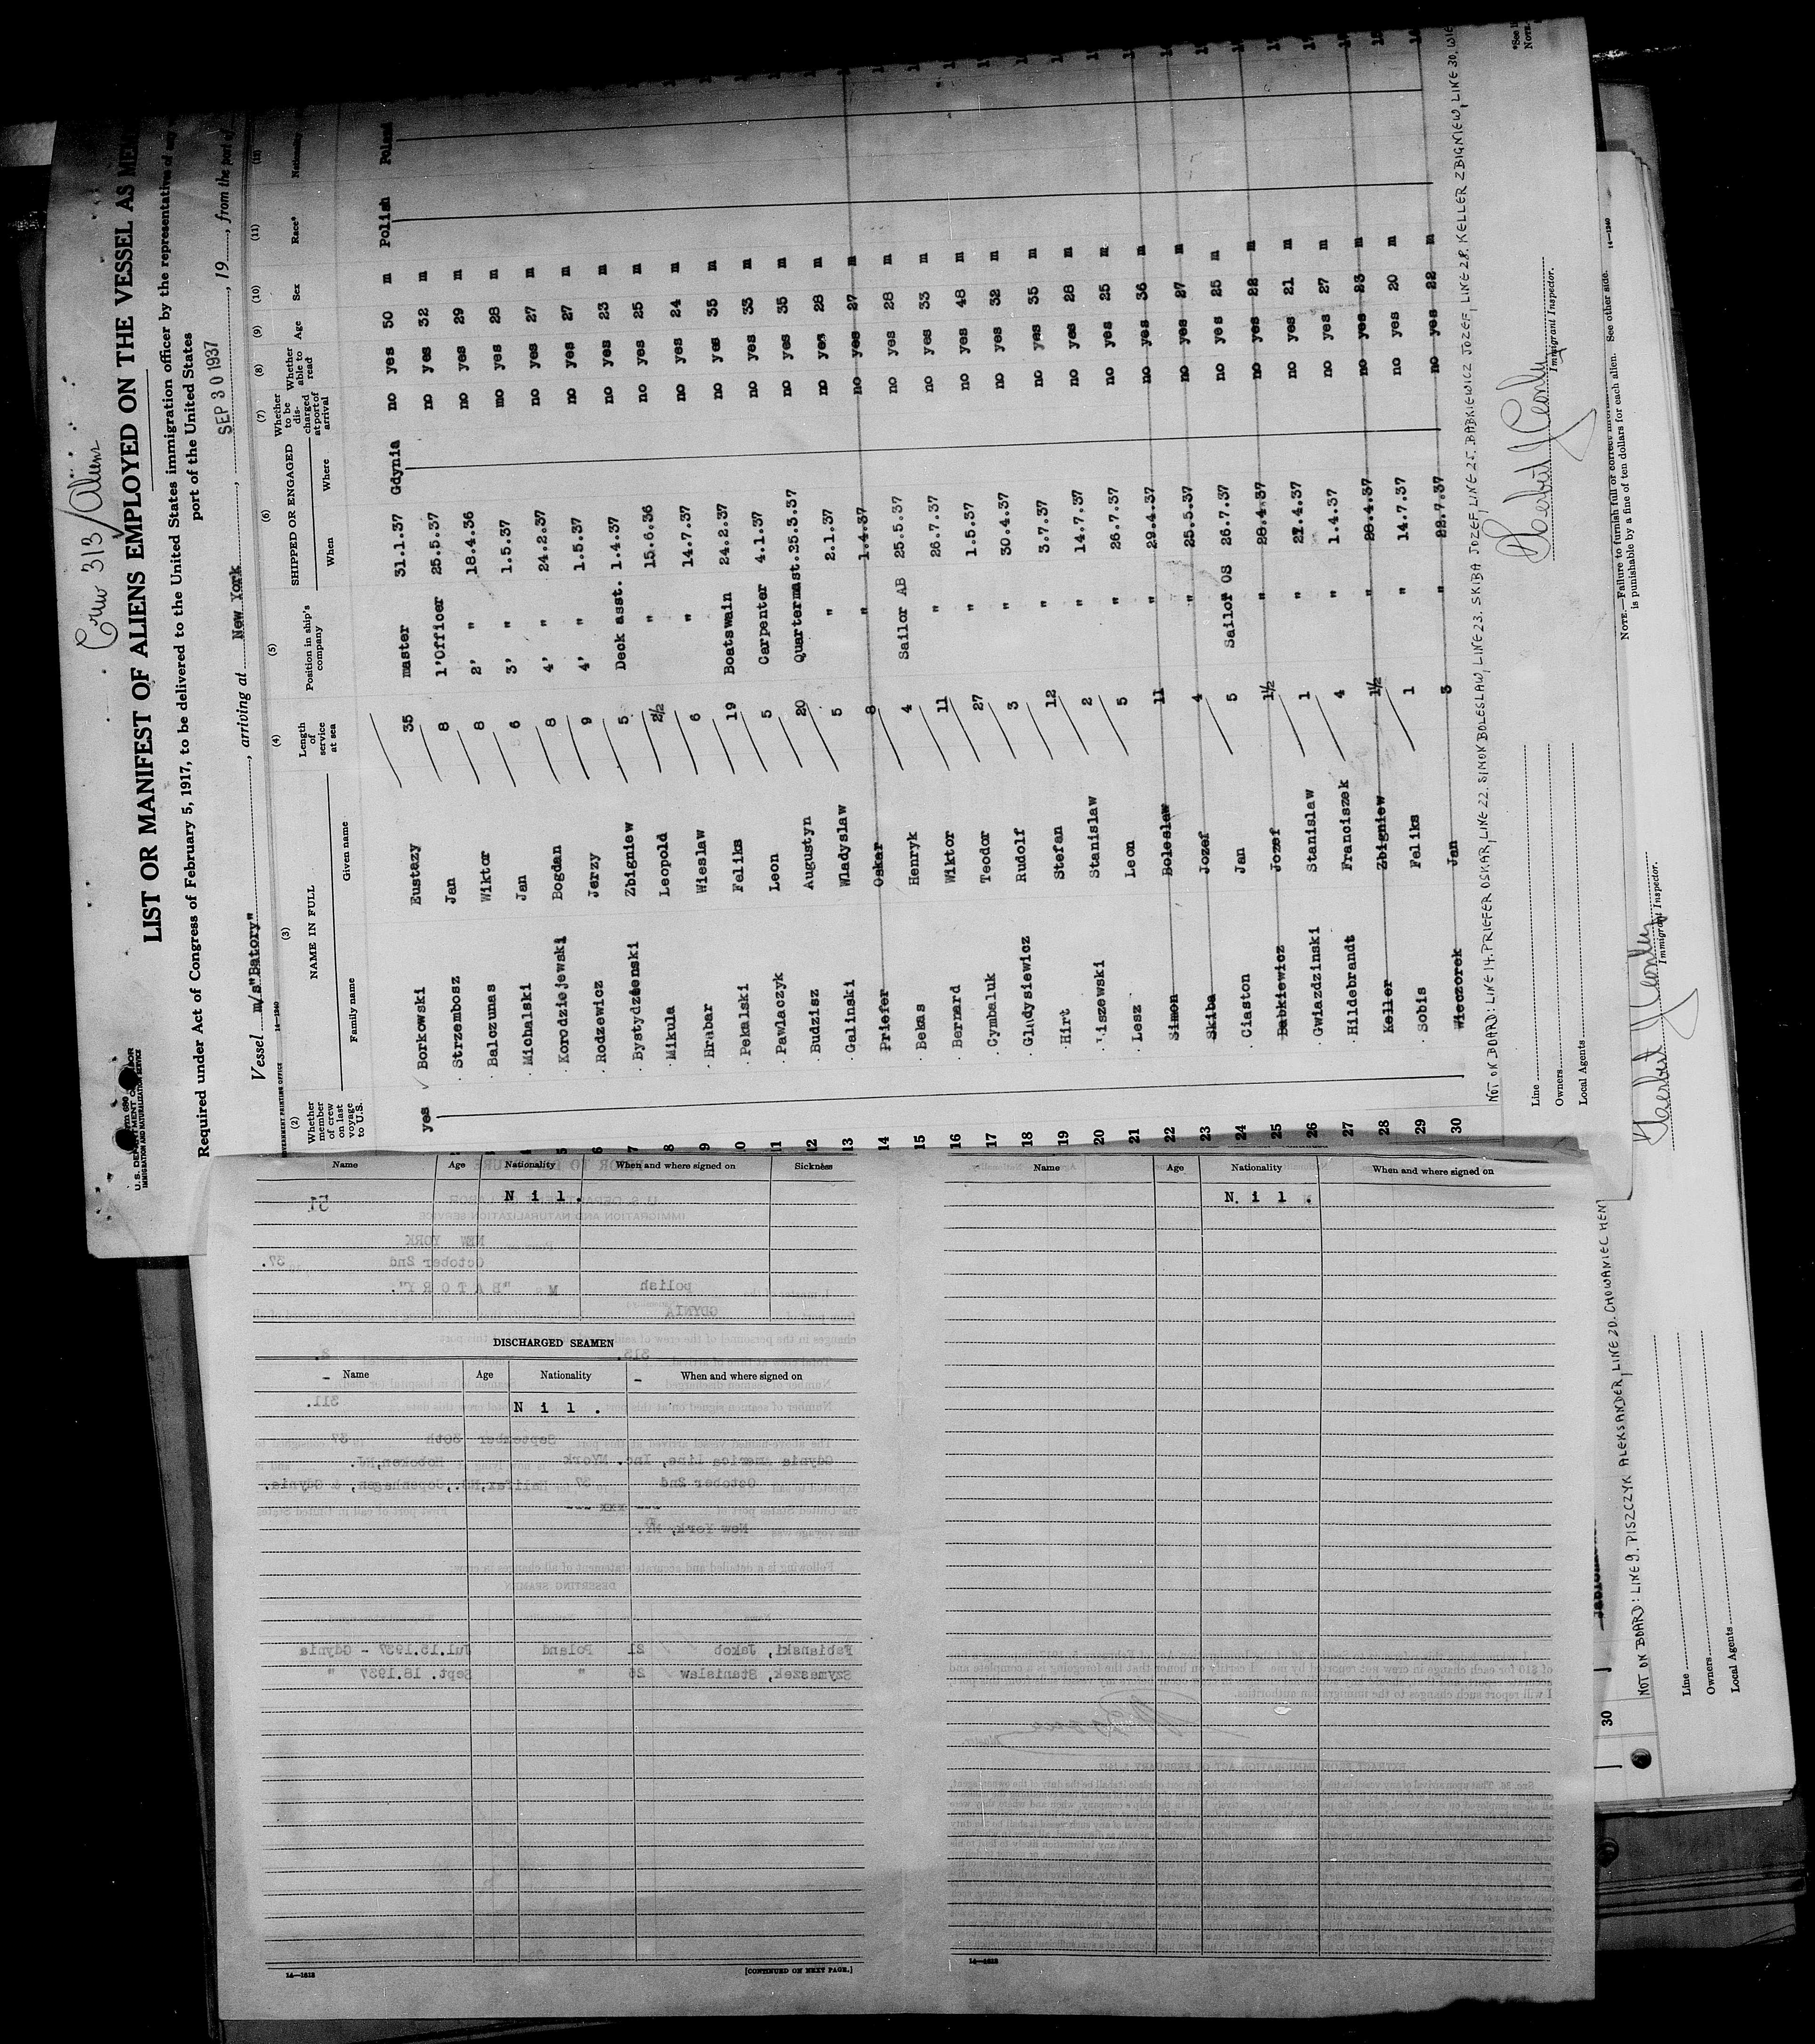 Crew 313/Aliens
U. S. DEPARTMENT OF LABOR
IMMIGRATION AND NATURALIZATION SERVICE
LIST OR MANIFEST OF ALIENS EMPLOYED ON THE VESSEL AS
Required under Act of Congress of February 5, 1917, to be delivered to the United States immigration officer by the representative of any
port of the United States
Vessel m/s"Batory", arriving at New York, SEP 30 1937, 19, from the port of
(2) (3) (4) (5) (6) (7) (8) (9) (10) (11) (12)
Whether member of crew on last voyage to U.S. NAME IN FULL Family name Given name Length of service at sea Position in ship's company SHIPPED OR ENGAGED When Where Whether to be discharged at port of arrival Whether able to read Age Sex Race* Nationality
yes Borkowski Eustazy 35 master 31.1.37 Gdynia no yes 50 m Polish Poland
Strzembosz Jan 8 1'Officer 25.5.37 no yes 32 m
Balczunas Wiktor 8 2' " 18.4.36 no yes 29 m
Michalski Jan 6 3' " 1.5.37 mo yes 28 m
5 Korodziejewski Bogdan 8 4' " 24.2.37 no yes 27 m
6 Rodzewicz Jerzy 9 4' " 1.5.37 no yes 27 m
7 Bystydzienski Zbigniew 5 Deck asst. 1.4.37 no yes 23 m
8 Mikula Leopold 2½ " 15.6.36 no yes 25 m
9 Hrabar Wieslaw 6 " 14.7.37 no yes 24 m
10 Pekalski Feliks 19 Boatswain 24.2.37 no yes 35 m
11 Pawlaczyk Leon 5 Carpenter 4.1.37 no yes 33 m
12 Budzisz Augustyn 20 Quartermast. 25.5.37 no yes 35 m
13 Galinski Wladyslaw 5 " 2.1.37 no yes 28 m
14 Priefer Oskar 8 " 1.4.37 no yes 27 m
15 Bekas Henryk 4 Sailor AB 25.5.37 no yes 28 m
16 Bernard Wiktor 11 " 26.7.37 no yes 33 m
17 Cymbaluk Teodor 27 " 1.5.37 no yes 48 m
18 Gladysiewicz Rudolf 3 " 30.4.37 no yes 32 m
19 Hirt Stefan 12 " 3.7.37 no yes 35 m
20 Liszewski Stanislaw 2 " 14.7.37 no yes 28 m
21 Lesz Leon 5 " 26.7.37 no yes 25 m
22 Simon Boleslaw 11 " 29.4.37 no yes 36 m
23 Skiba Jozef 4 " 25.5.37 no yes 27 m
24 Ciaston Jan 5 Sailor OS 26.7.37 no yes 25 m
25 Babkiewicz Jozef 1½ " 28.4.37 no yes 22 m
26 Gwiazdzinski Stanislaw 1 " 21.4.37 no yes 21 m
27 Hildebrandt Franciszek 4 " 1.4.37 no yes 27 m
28 Keller Zbigniew 1½ " 28.4.37 no yes 23 m
29 Sobis Feliks 1 " 14.7.37 no yes 20 m
30 Wieczorek Jan 3 " 22.7.37 no yes 22 m
NOT ON BOARD: LINE 14. PRIEFER OSKAR, LINE 22. SIMON BOLESLAW, LINE 23. SKIBA JOZEF, LINE 25. BABKIEWICZ JOZEF, LINE 28. KELLER ZBIGNIEW, LINE 30. WIE
Line
Owners
Local Agents
Immigrant Inspector.
*See
NOTE.
14—1240
NOTE.—Failure to furnish full or correct
is punishable by a fine of ten dollars for each alien. See other side.
Immigrant Inspector.
30
NOT ON BOARD: LINE 9. PISZCZYK ALEKSANDER, LINE 20. CHOWANIEC HEN
Line
Owners
Local Agents
Name Age Nationality When and where signed on Sickness
Nil.
DISCHARGED SEAMEN
Name Age Nationality When and where signed on
Nil.
14—1613
[CONTINUED ON NEXT PAGE.]
Name Age Nationality When and where signed on
Nil.
14—1613
NEW YORK
October 2nd 37.
Ms "BATORY". polish
GDYNIA
313. 2.
311.
September 30th 37
Gdynia America line, Inc. NYork Hoboken, NJ.
October 2nd 37 Halifax, NS., Copenhagen, & Gdynia.
New York, NY.
Following is a detailed and accurate statement of all changes in crew:
DESERTING SEAMEN
Fabianski, Jakob 21 Poland Jul.15.1937 - Gdynia
Szymaszek, Stanislaw 26 " Sept. 18.1937 "